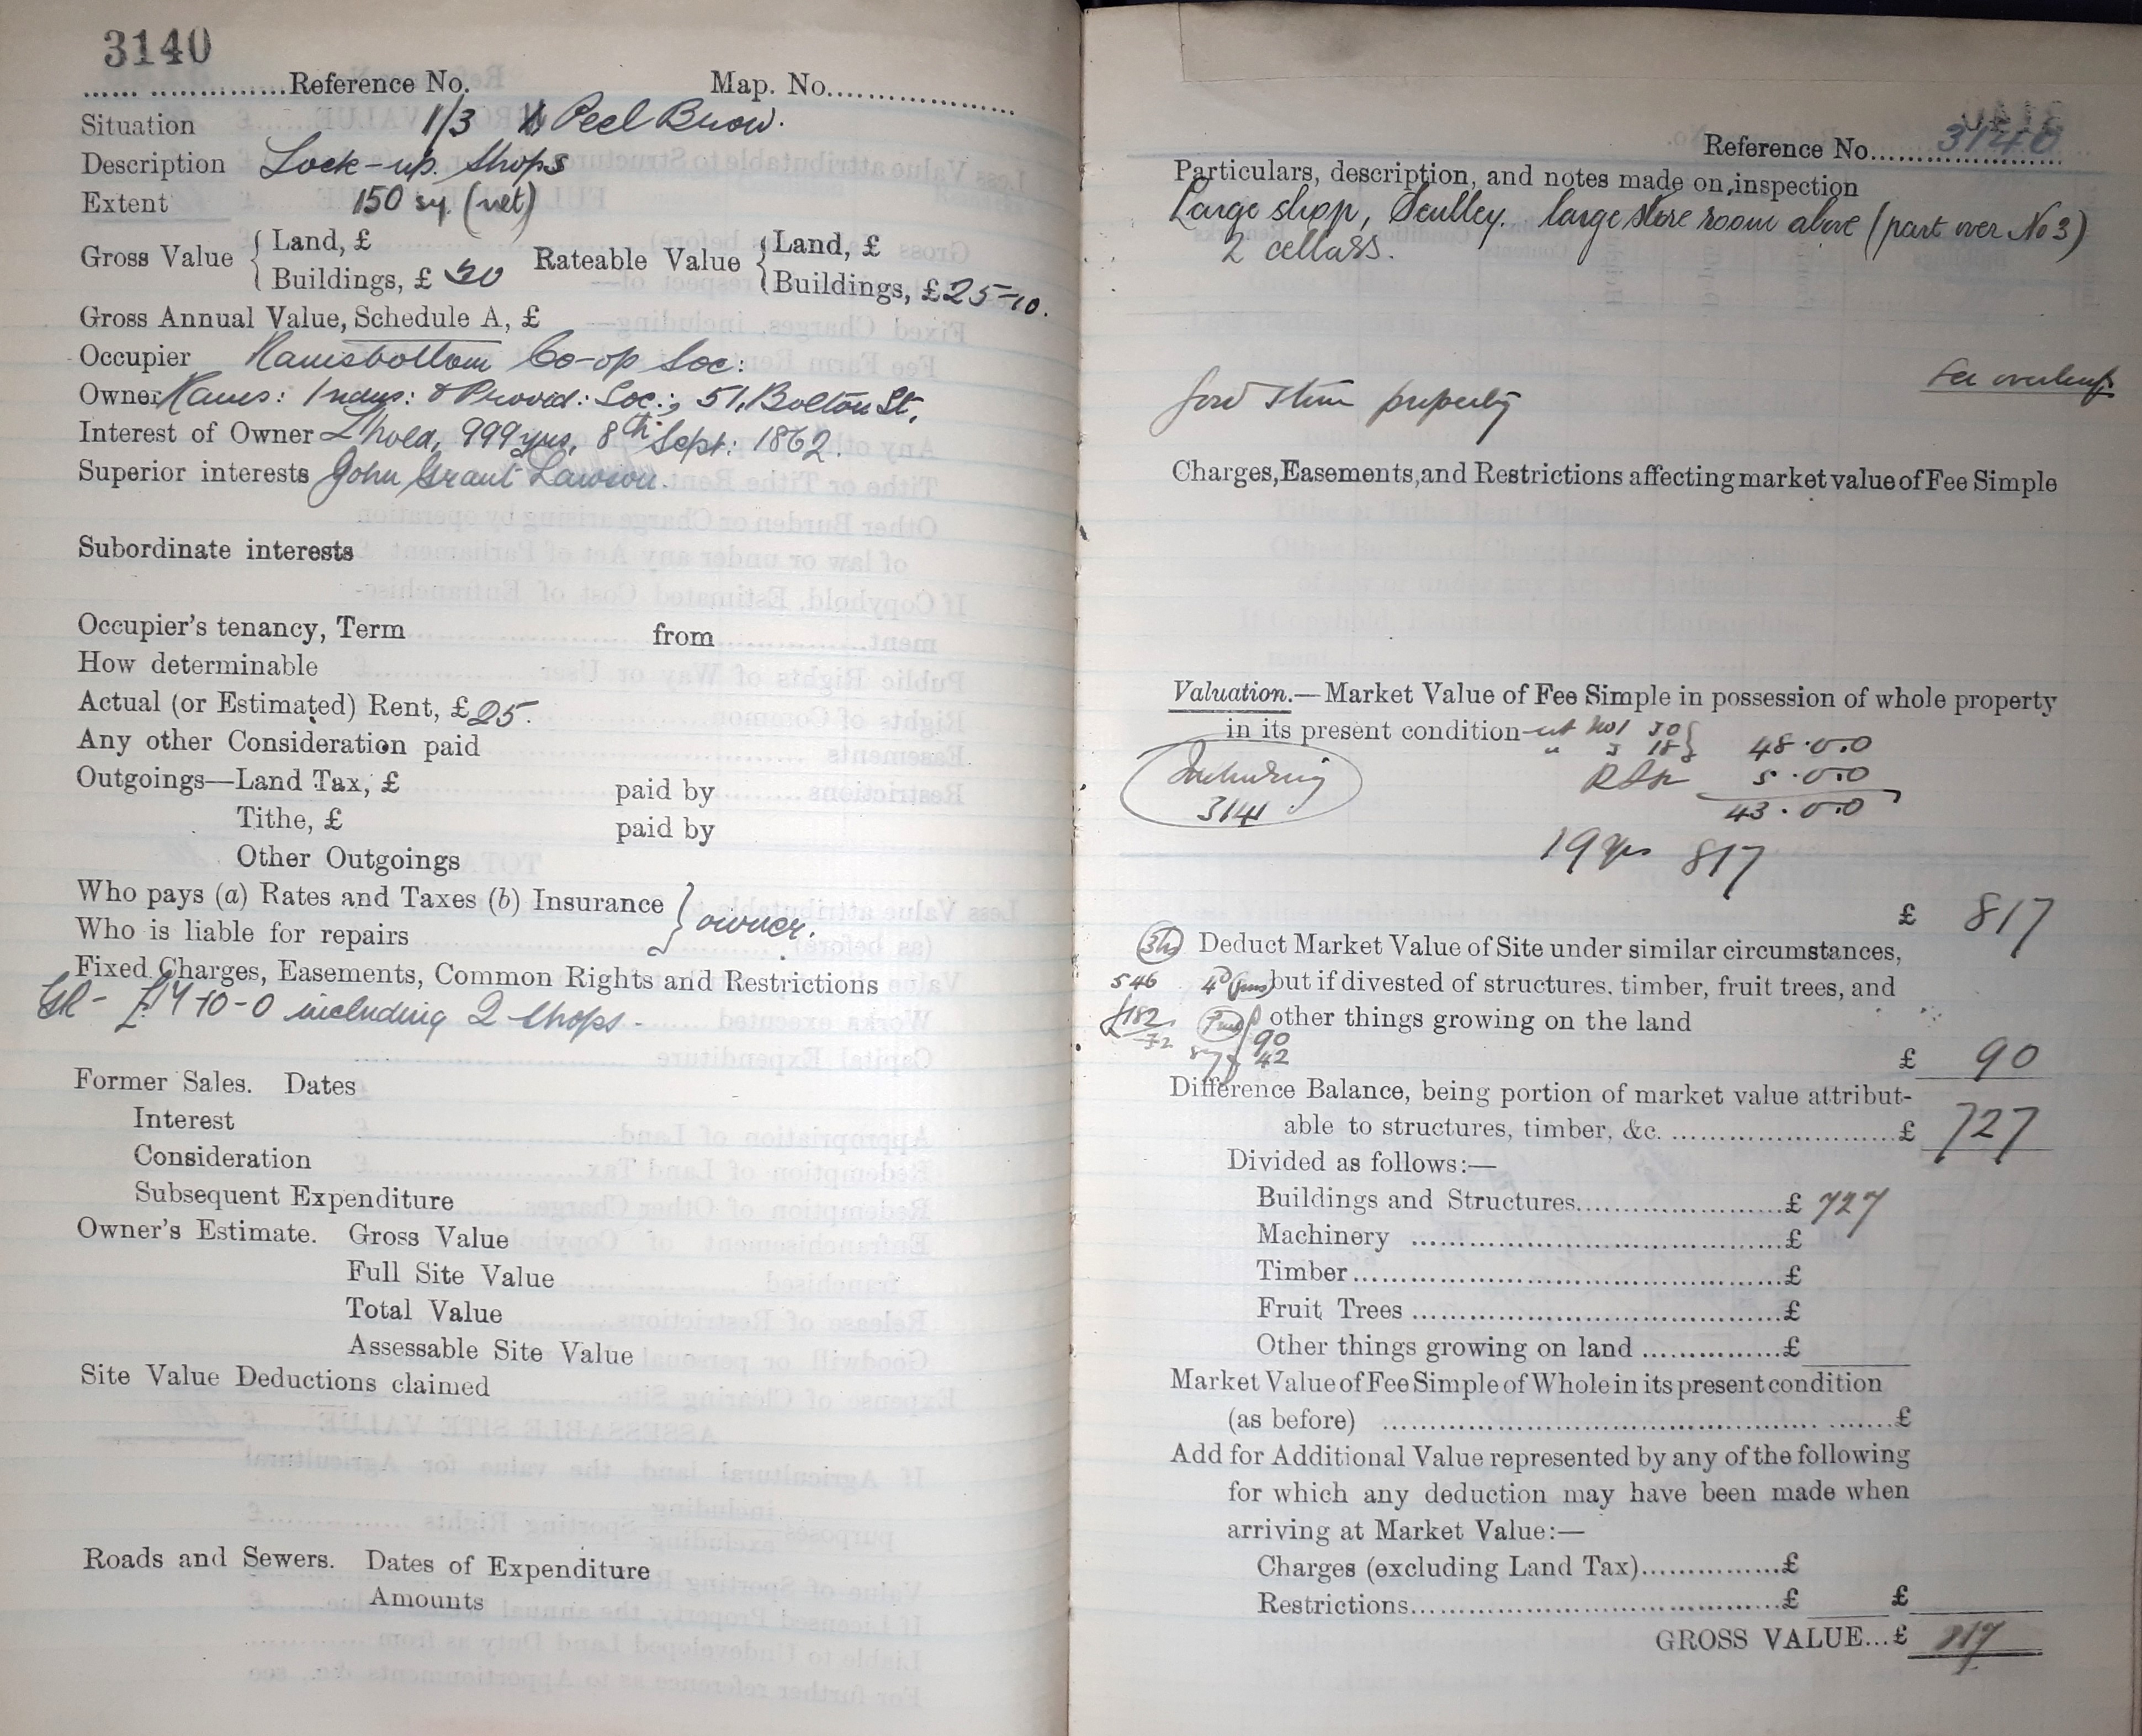 3140
...... ..............Reference No. Map. No....................
Situation 1/3 Peel Brow.
Description Lock-up. Shops
Extent 150 sy. (net)
Gross Value { Land, £ Rateable Value { Land, £
Buildings, £ 30 Buildings, £25-10.
Gross Annual Value, Schedule A, £
Occupier Ramsbottom Co-op Soc:
Owner Rams: Indus: & Provid: Soc:, 51, Bolton St,
Interest of Owner L'hold, 999 yrs, 8th Sept: 1862.
Superior interests John Grant Lawson.
Subordinate interests
Occupier's tenancy, Term from
How determinable
Actual (or Estimated) Rent, £25.
Any other Consideration paid
Outgoings—Land Tax, £ paid by
Tithe, £ paid by
Other Outgoings
Who pays (a) Rates and Taxes (b) Insurance } owner.
Who is liable for repairs
Fixed Charges, Easements, Common Rights and Restrictions
10-0 including 2 shops.
Former Sales. Dates
Interest
Consideration
Subsequent Expenditure
Owner's Estimate. Gross Value
Full Site Value
Total Value
Assessable Site Value
Site Value Deductions claimed
Roads and Sewers. Dates of Expenditure
Amounts
Reference No. 3140
Particulars, description, and notes made on inspection
Large shop, Scullery. large store room above (part over No 3)
2 cellars.
See overleaf
property
Charges, Easements, and Restrictions affecting market value of Fee Simple
Valuation.—Market Value of Fee Simple in possession of whole property
in its present condition No 1 30 }
" 3 18 } 48.0.0
Including 5.0.0
3141 43.0.0
19 yrs 817
£ 817
Deduct Market Value of Site under similar circumstances,
546 but if divested of structures, timber, fruit trees, and
£182 other things growing on the land
72 90
42
£ 90
Difference Balance, being portion of market value attribut-
able to structures, timber, &c. ........................£ 727
Divided as follows:—
Buildings and Structures......................£ 727
Machinery ......................................£
Timber............................................£
Fruit Trees ......................................£
Other things growing on land ................£
Market Value of Fee Simple of Whole in its present condition
(as before) ..................................................£
Add for Additional Value represented by any of the following
for which any deduction may have been made when
arriving at Market Value:—
Charges (excluding Land Tax)...............£
Restrictions......................................£ £
GROSS VALUE...£ 817